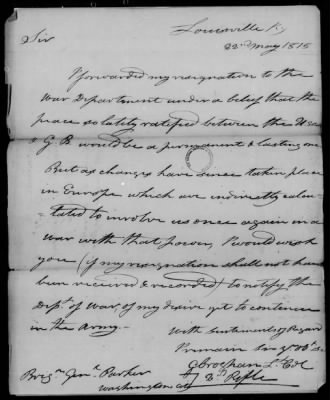 Louisville Ky
22d May 1815
Sir
I forwarded my resignation to the
War Department under a belief that the
peace so lately ratified between the U.
& G. B. would be a permanent & lasting one
But as changes have since taken place
in Europe which are indirectly calcu-
-lated to involve us once again in a
war with that power, I would wish
you (if my resignation shall not have
been received & recorded) to notify the
Dept. of War of my desire yet to continue
in the Army.
With Sentiments of Regard
I remain Sir Yr Ob. St.
G Croghan Lt. Col
2d Rifle
Brigr. Genl. Parker
Washington city